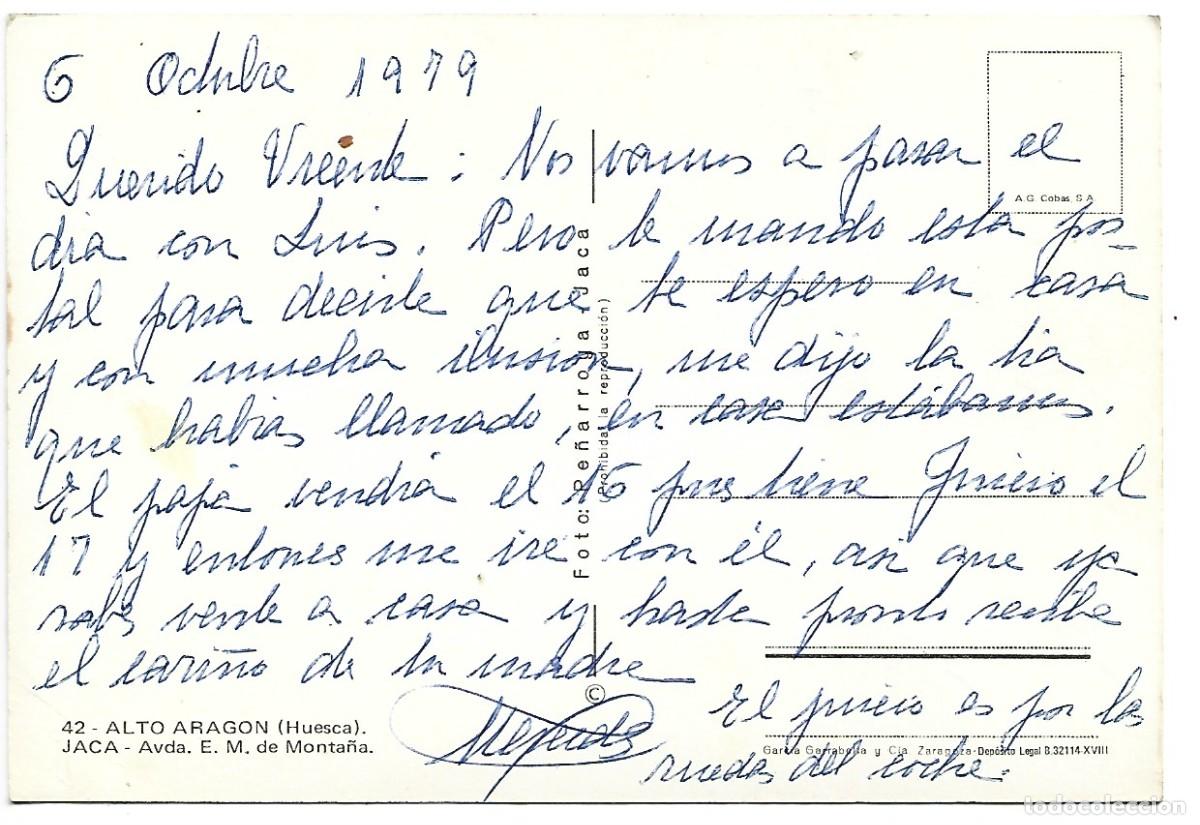 6 Octubre 1979
Querido Vicente : Nos vamos a pasar el
dia con Luis. Pero te mando esta pos-
tal para decirte que te espero en casa
y con mucha ilusión, me dijo la tia
que habias llamado, en casa estábamos.
El papa vendrá el 16 pues tiene Juicio el
17 y entonces me ire con él, asi que ya
sabes vente a casa y hasta pronto recibe
el cariño de tu madre
El juicio es por las
ruedas del coche.
A.G. Cobas, S.A.
Foto: Peñarroya Jaca
(Prohibida la reproducción)
©
42 - ALTO ARAGON (Huesca).
JACA - Avda. E. M. de Montaña.
García Garrabella y Cía. Zaragoza-Depósito Legal B.32114-XVIII
todocoleccion